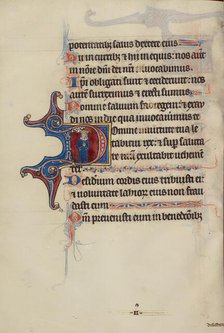 potentatib; salus dextere eius
Hii in curribus et hii in equis: nos aut
in nōīe dn̄i dei nr̄i inuocabimus
Ipsi obligati sunt et ceciderunt: nos aut
surreximus et erecti sumus
Domine saluum fac regem: et exaudi
nos in die qua inuocauerimus te
Domine in uirtute tua le
tabitur rex: et super
salutare tuum
exultabit uehemen
ter
Desiderium cordis eius tribuisti ei
et uoluntate labiorum eius non frau
dasti eum
Qm̄ preuenisti eum in